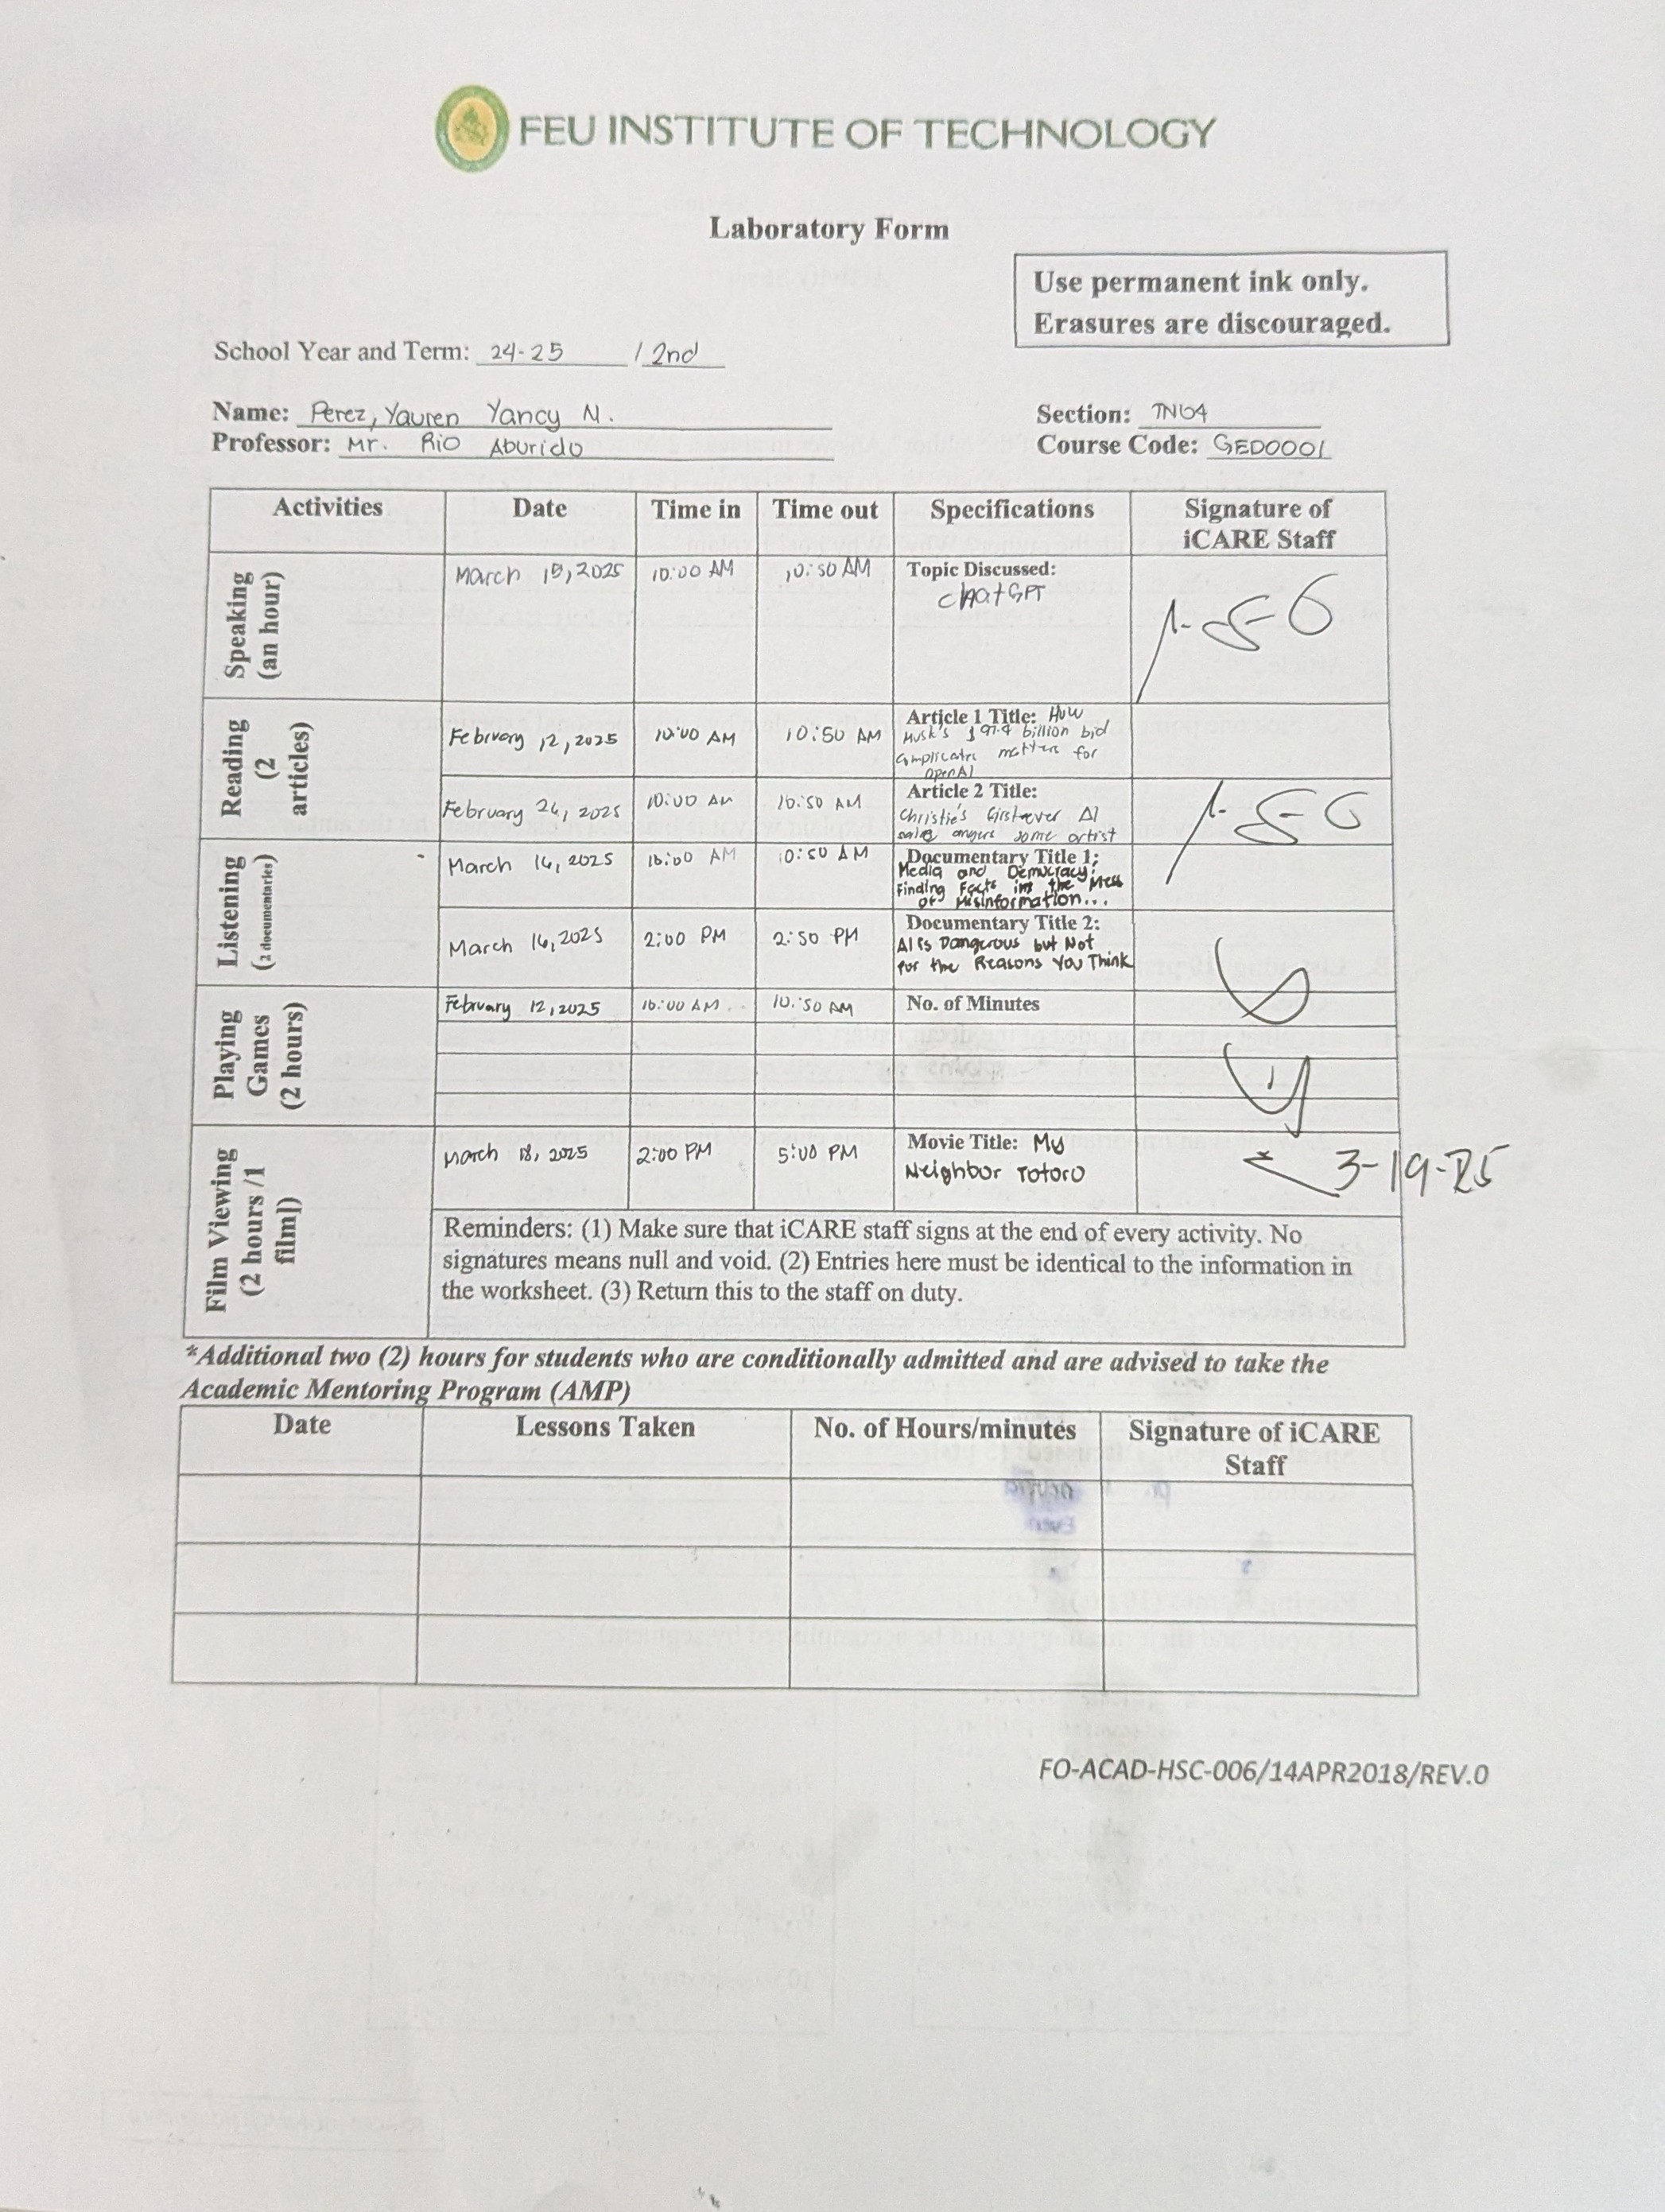 FEU INSTITUTE OF TECHNOLOGY
Laboratory Form
Use permanent ink only.
Erasures are discouraged.
School Year and Term: 24-25 / 2nd
Name: Perez, Yauren Yancy N.
Section: TN04
Professor: Mr. Rio Aburido
Course Code: GED0001
Activities Date Time in Time out Specifications Signature of iCARE Staff
Speaking (an hour)
March 15, 2025 10:00 AM 10:50 AM Topic Discussed:
ChatGPT
Reading (2 articles)
February 12, 2025 10:00 AM 10:50 AM Article 1 Title: How
Musk's $97.4 billion bid
complicates matters for
OpenAI
February 26, 2025 10:00 AM 10:50 AM Article 2 Title:
Christie's first-ever AI
sale angers some artist
Listening (2 documentaries)
March 16, 2025 10:00 AM 10:50 AM Documentary Title 1:
Media and Democracy:
Finding Facts in the Mess
of Misinformation...
March 16, 2025 2:00 PM 2:50 PM Documentary Title 2:
AI is Dangerous but Not
for the Reasons You Think
Playing Games (2 hours)
February 12, 2025 10:00 AM 10:50 AM No. of Minutes
Film Viewing (2 hours /1 film])
March 18, 2025 2:00 PM 5:00 PM Movie Title: My
Neighbor Totoro
3-19-25
Reminders: (1) Make sure that iCARE staff signs at the end of every activity. No
signatures means null and void. (2) Entries here must be identical to the information in
the worksheet. (3) Return this to the staff on duty.
*Additional two (2) hours for students who are conditionally admitted and are advised to take the
Academic Mentoring Program (AMP)
Date Lessons Taken No. of Hours/minutes Signature of iCARE Staff
FO-ACAD-HSC-006/14APR2018/REV.0